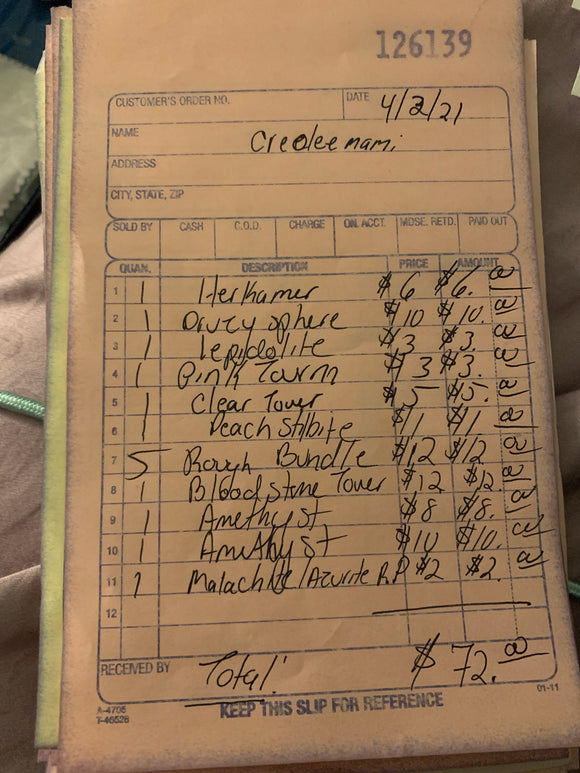 126139
CUSTOMER'S ORDER NO. DATE 4/2/21
NAME Creoleemami
ADDRESS
CITY, STATE, ZIP
SOLD BY CASH C.O.D. CHARGE ON. ACCT. MDSE. RETD. PAID OUT
QUAN. DESCRIPTION PRICE AMOUNT
1 1 Herkamer $6 $6.00
2 1 Druzy sphere $10 $10.00
3 1 lepidolite $3 $3.00
4 1 Pink Tourm $3 $3.00
5 1 Clear Tower $5 $5.00
6 1 Peach Stilbite $11 $11.00
7 5 Rough Bundle $12 $12.00
8 1 Bloodstone Tower $12 $12.00
9 1 Amethyst $8 $8.00
10 1 Amethyst $10 $10.00
11 1 Malachite/Azurite RP $2 $2.00
12
RECEIVED BY Total! $72.00
A-4705
T-46526
KEEP THIS SLIP FOR REFERENCE
01-11